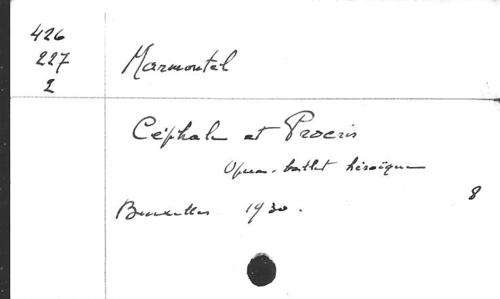 426
227
2
Marmontel
Céphale et Procris
Opéra-ballet héroïque
8
Bruxelles 1930.